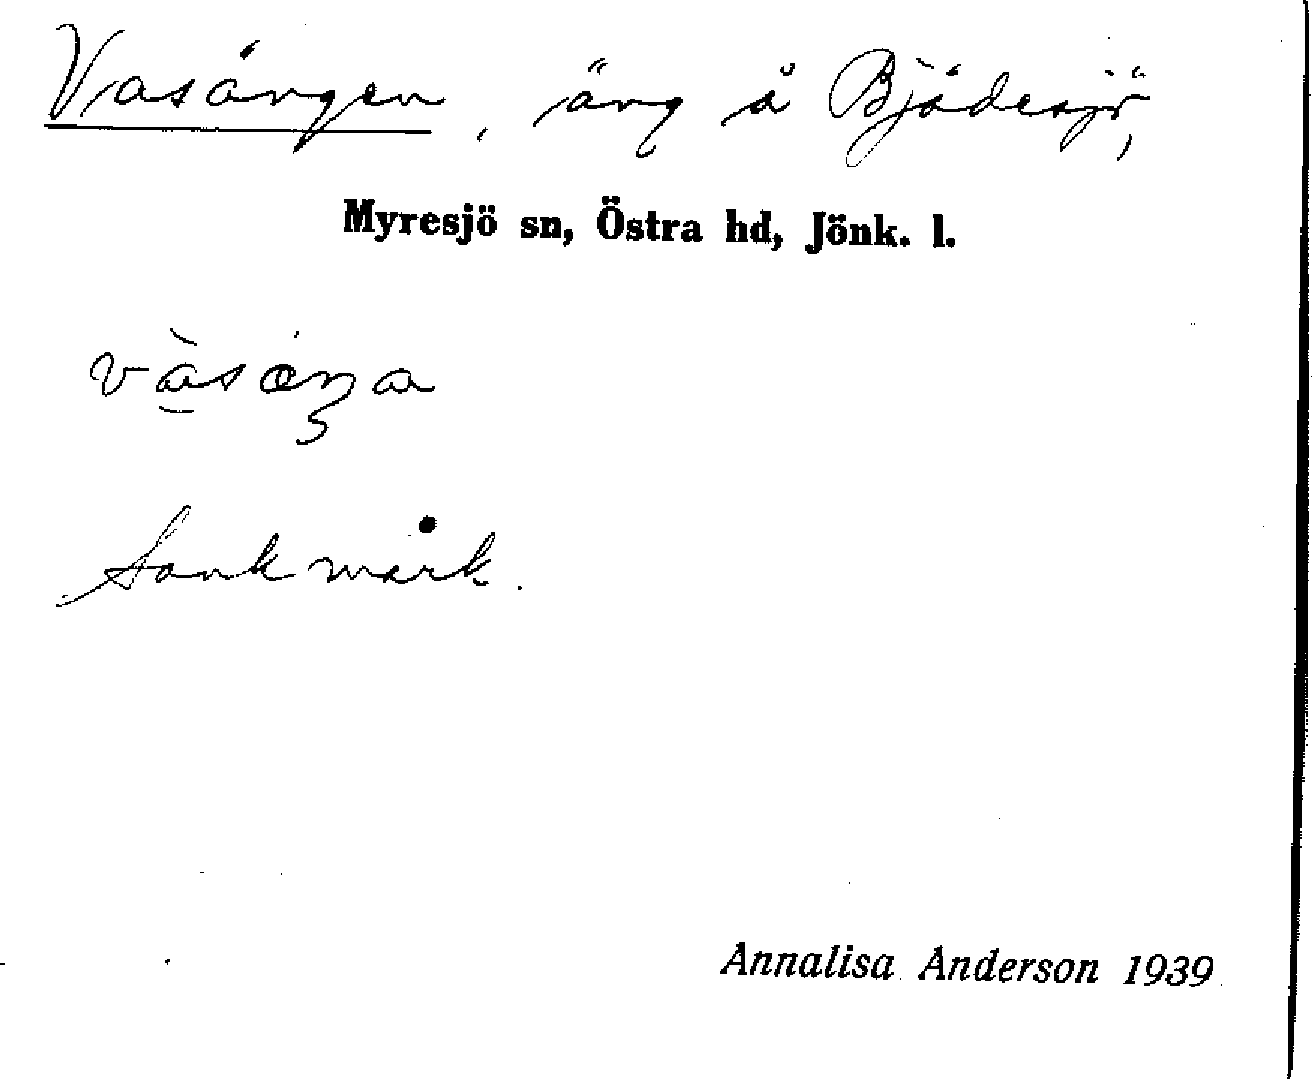 Vasängen, äng å Bjädesjö,
Myresjö sn, Östra hd, Jönk. l.
vàsæŋa
Sank mark.
Annalisa Anderson 1939